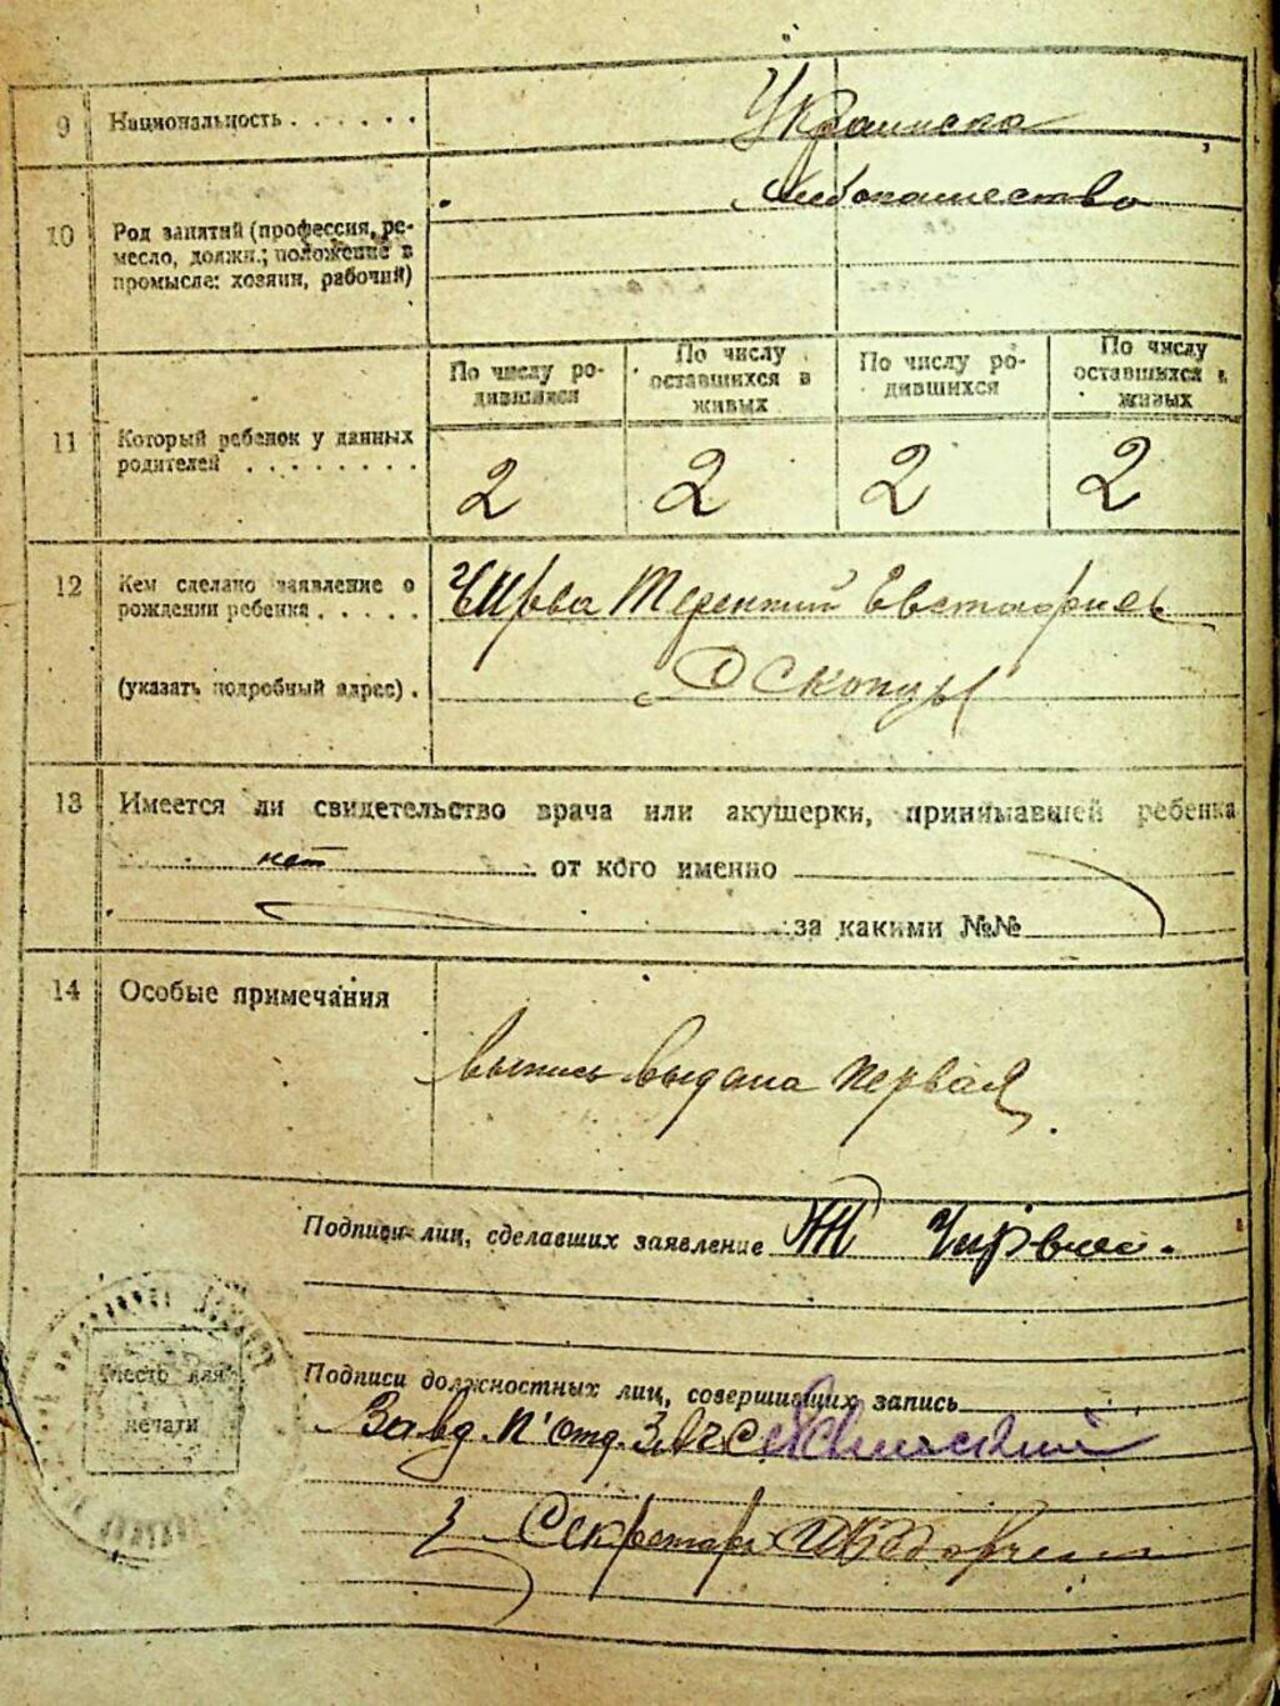 9 Национальность . . . . . . Украинска
Хлебопашество
10 Род занятий (профессия, ре-
месло, должн.; положение в
промысле: хозяин, рабочий)
По числу ро-
дившихся
По числу
оставшихся в
живых
По числу ро-
дившихся
По числу
оставшихся в
живых
11 Который ребенок у данных
родителей . . . . . . . .
2 2 2 2
12 Кем сделано заявление о
рождении ребенка . . . . .
Чирва Терентий Евстафиев
(указать подробный адрес) .
13 Имеется ли свидетельство врача или акушерки, принимавшей ребенка
нет от кого именно
за какими №№
14 Особые примечания
выпись выдана первая
Подписи лиц, сделавших заявление Чирва.
Место для
печати
Подписи должностных лиц, совершивших запись
Завд. П'отд. ЗАГС
Секретарь